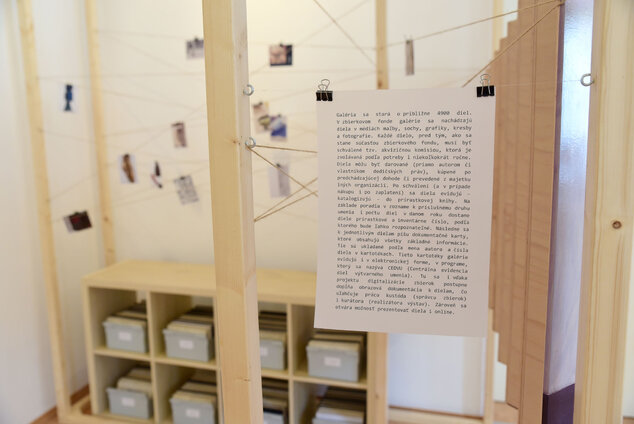 Galéria sa stará o približne 4900 diel.
V zbierkovom fonde galérie sa nachádzajú
diela v médiách maľby, sochy, grafiky, kresby
a fotografie. Každé dielo, pred tým, ako sa
stane súčasťou zbierkového fondu, musí byť
schválené tzv. akvizičnou komisiou, ktorá je
zvolávaná podľa potreby i niekoľkokrát ročne.
Diela môžu byť darované (priamo autorom či
vlastníkom dedičských práv), kúpené po
predchádzajúcej dohode či prevedené z majetku
iných organizácií. Po schválení (a v prípade
nákupu i po zaplatení) sa diela evidujú -
katalogizujú - do prírastkovej knihy. Na
základe poradia v zozname k príslušnému druhu
umenia i počtu diel v danom roku dostane
dielo prírastkové a inventárne číslo, podľa
ktorého bude ľahko rozpoznateľné. Následne sa
k jednotlivým dielam píšu dokumentačné karty,
ktoré obsahujú všetky základné informácie.
Tie sú ukladané podľa mena autora a čísla
diela v kartotékach. Tieto kartotéky galéria
eviduje i v elektronickej forme, v programe,
ktorý sa nazýva CEDVU (Centrálna evidencia
diel výtvarného umenia). Tu sa i vďaka
projektu digitalizácie zbierok postupne
dopĺňa obrazová dokumentácia k dielam, čo
uľahčuje prácu kustóda (správcu zbierok)
i kurátora (realizátora výstav). Zároveň sa
otvára možnosť prezentovať diela i online.